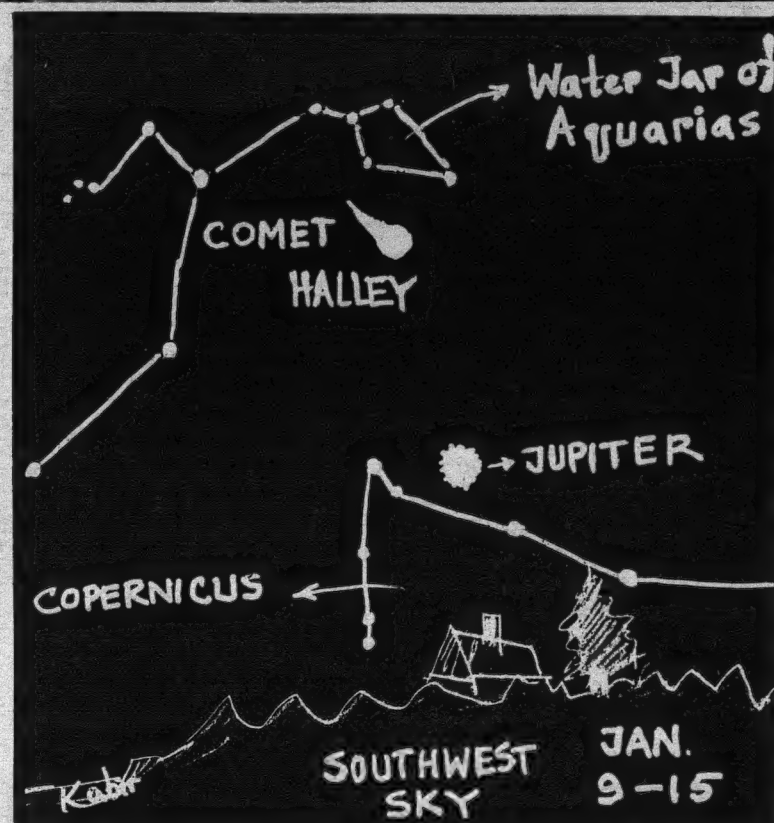 Water Jar of
Aquarias
COMET
HALLEY
JUPITER
COPERNICUS
SOUTHWEST
SKY
JAN.
9-15
Kabir